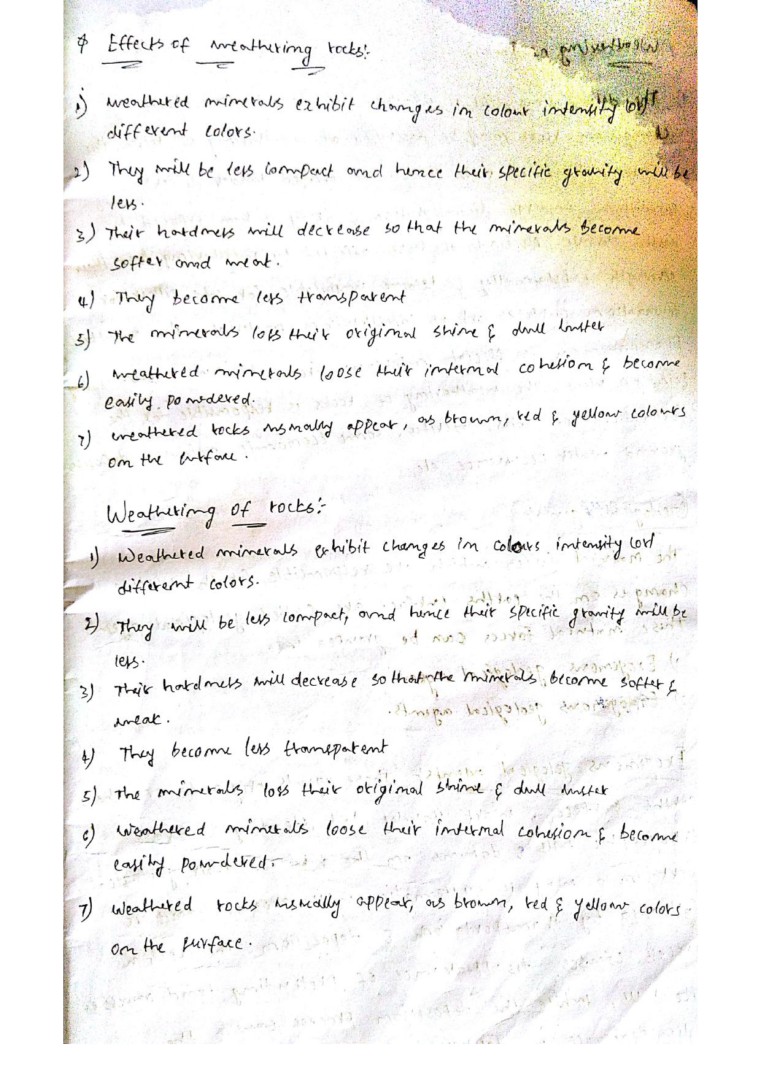 * Effects of weathering rocks:-
1) weathered minerals exhibit changes in colour intensity (or)
different colors.
2) They will be less compact and hence their specific gravity will be
less.
3) Their hardness will decrease so that the minerals become
softer and weak.
4) They become less transparent
5) The minerals loss their original shine & dull luster
6) weathered minerals loose their internal cohesion & become
easily powdered.
7) weathered rocks usually appear, as brown, red & yellow colours
on the surface.
Weathering of rocks:-
1) Weathered minerals exhibit changes in colours intensity (or)
different colors.
2) They will be less compact, and hence their specific gravity will be
less.
3) Their hardness will decrease so that the minerals become softer &
weak.
4) They become less transparent
5) The minerals loss their original shine & dull luster
6) Weathered minerals loose their internal cohesion & become
easily powdered.
7) Weathered rocks usually appear, as brown, red & yellow colors
on the surface.